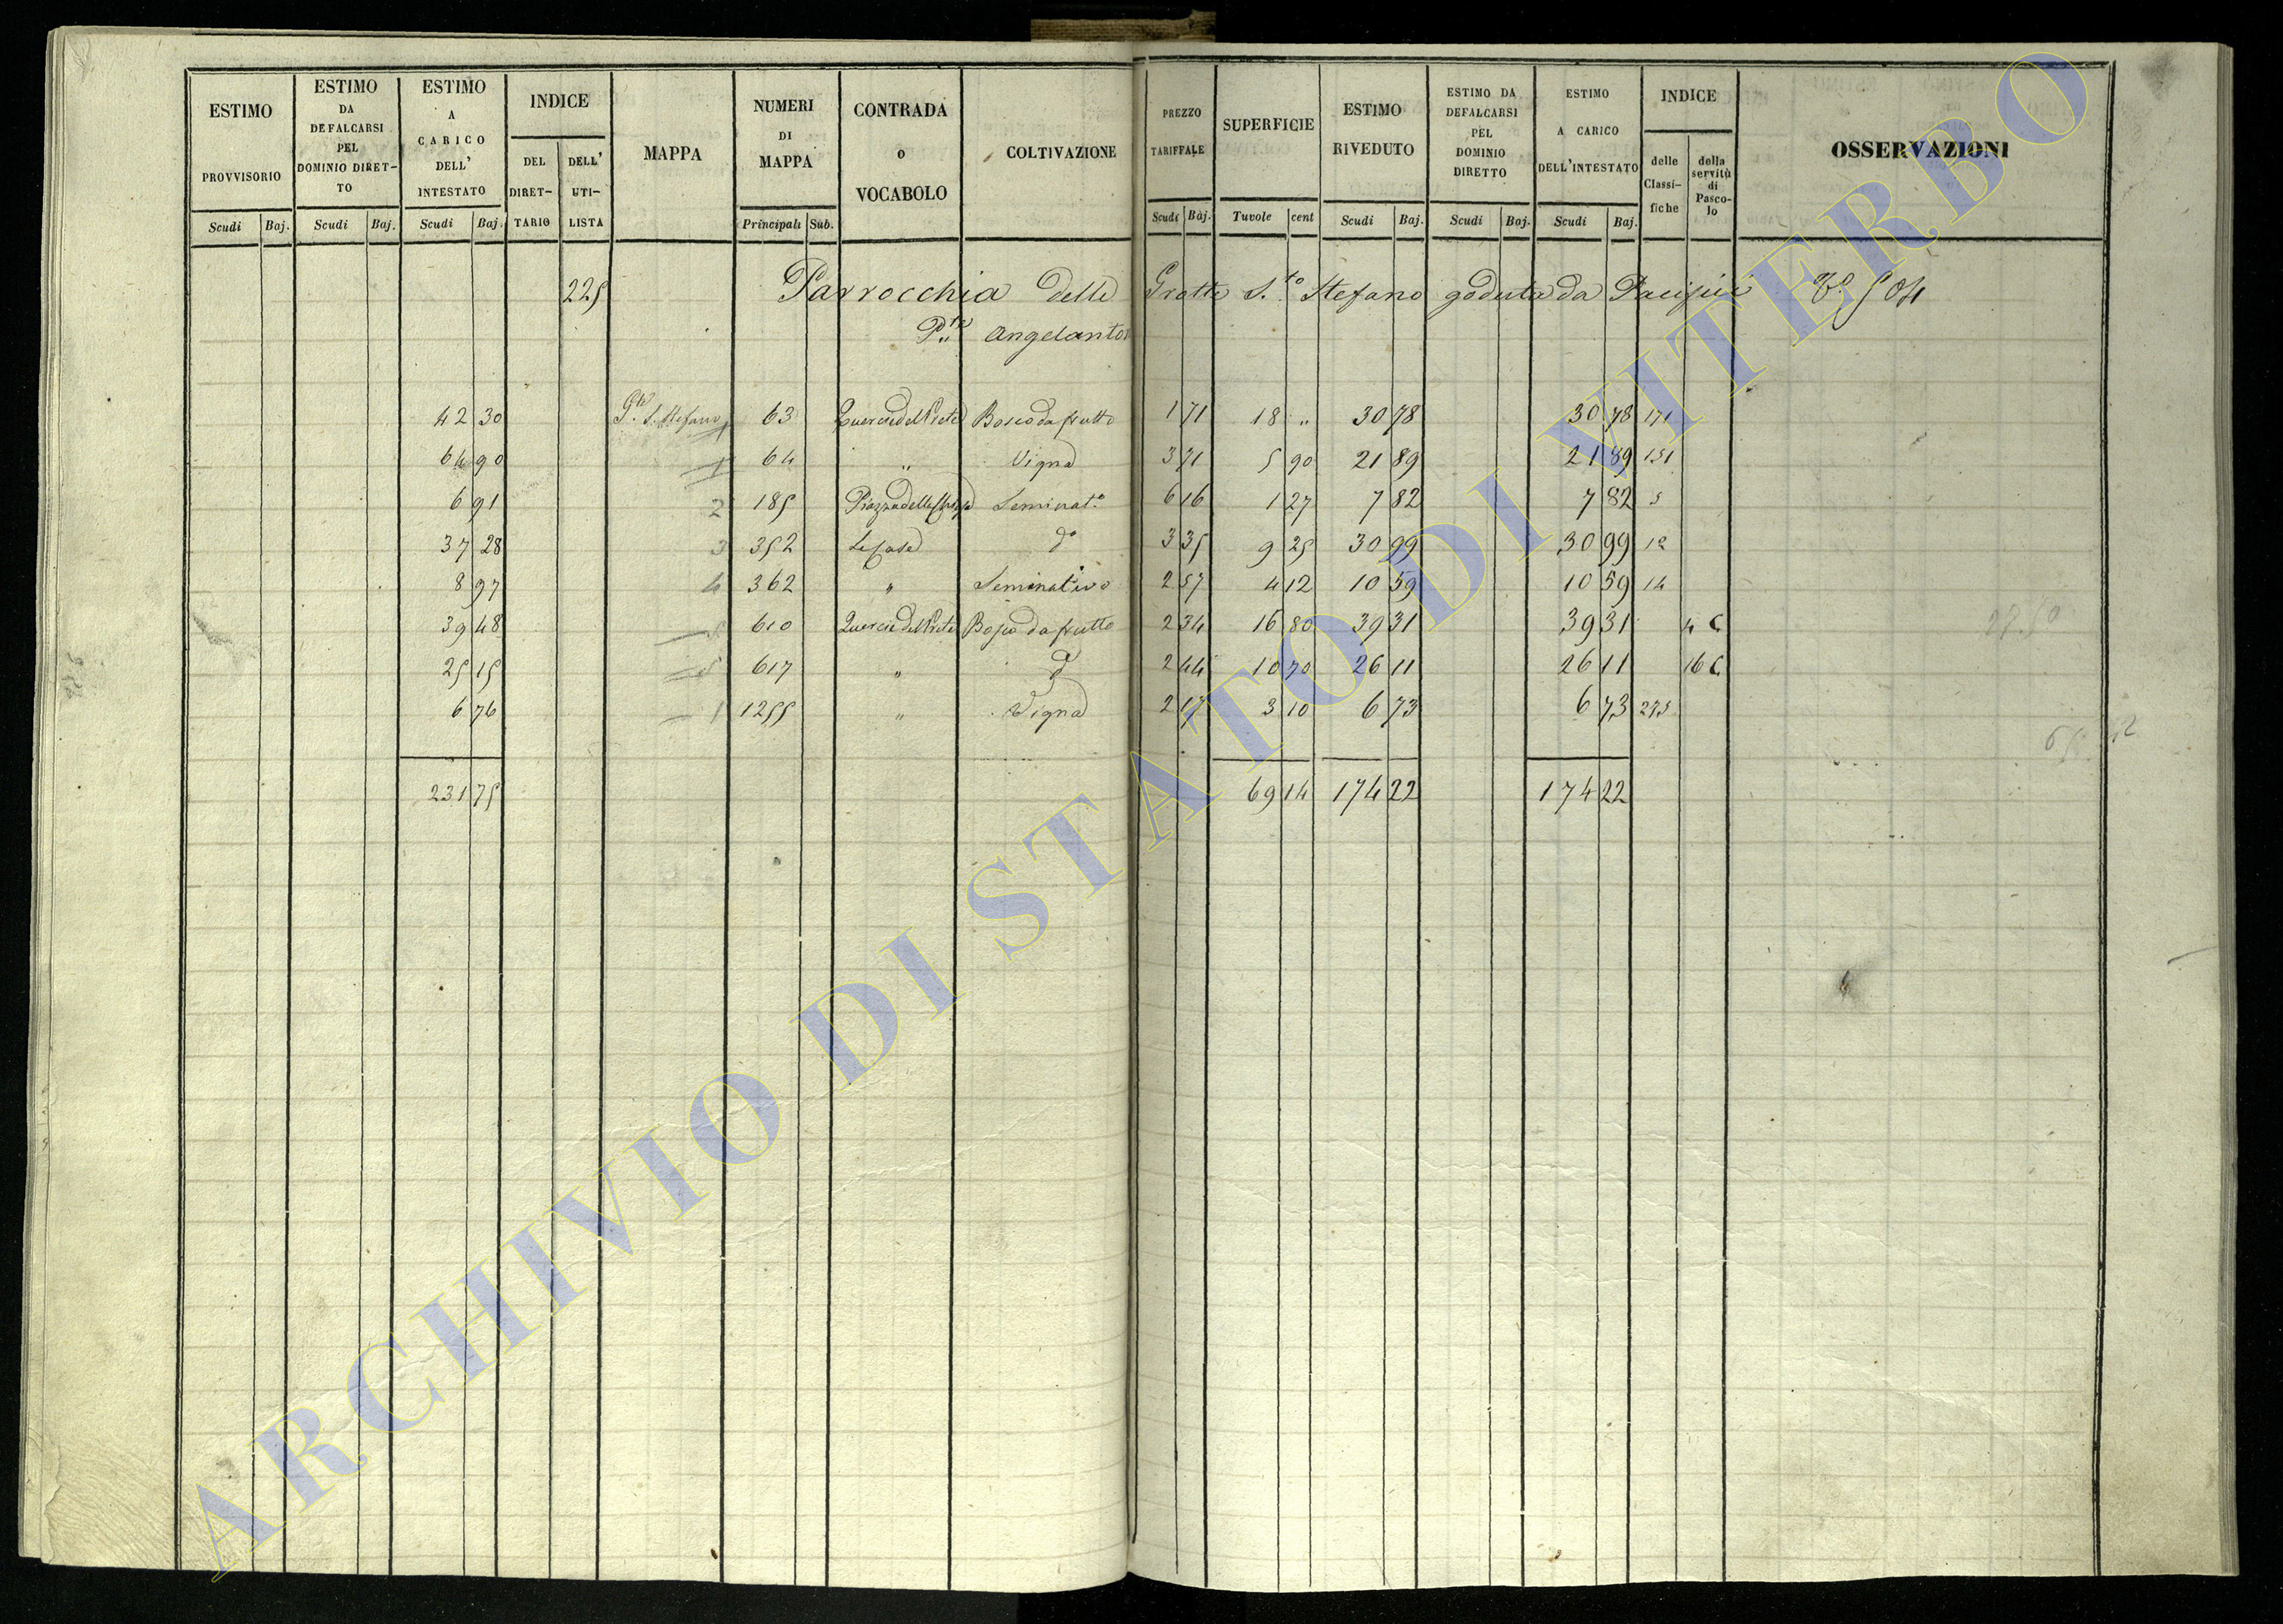 ESTIMO PROVVISORIO Scudi Baj.
ESTIMO DA DEFALCARSI PEL DOMINIO DIRETTO Scudi Baj.
ESTIMO A CARICO DELL' INTESTATO Scudi Baj.
INDICE DEL DIRETTARIO DELL' UTILISTA
MAPPA
NUMERI DI MAPPA Principali Sub.
CONTRADA O VOCABOLO
COLTIVAZIONE
PREZZO TARIFFALE Scudi Baj.
SUPERFICIE Tavole cent
ESTIMO RIVEDUTO Scudi Baj.
ESTIMO DA DEFALCARSI PEL DOMINIO DIRETTO Scudi Baj.
ESTIMO A CARICO DELL'INTESTATO Scudi Baj.
INDICE delle Classifiche della servitù di Pascolo
OSSERVAZIONI
225 Parrocchia delle Grotte S.to Stefano goduta da
Angelantoni
42 30 S. Stefano 63 Quercie del Prete Bosco da frutto 1 71 18 " 30 78 30 78 171
64 90 1 64 " Vigna 3 71 5 90 21 89 21 89 151
6 91 2 185 Piazza della Seminat.o 6 16 1 27 7 82 7 82 5
37 28 3 352 Le Case d.o 3 35 9 25 30 99 30 99 12
8 97 4 362 " Seminativo 2 57 4 12 10 59 10 59 14
39 48 610 Quercie del Prete Bosco da frutto 2 34 16 80 39 31 39 31 4 C
25 15 617 " d.o 2 44 10 70 26 11 26 11 16 C
6 76 1 1255 " Vigna 2 17 3 10 6 73 6 73 275
231 75 69 14 174 22 174 22
ARCHIVIO DI STATO DI VITERBO